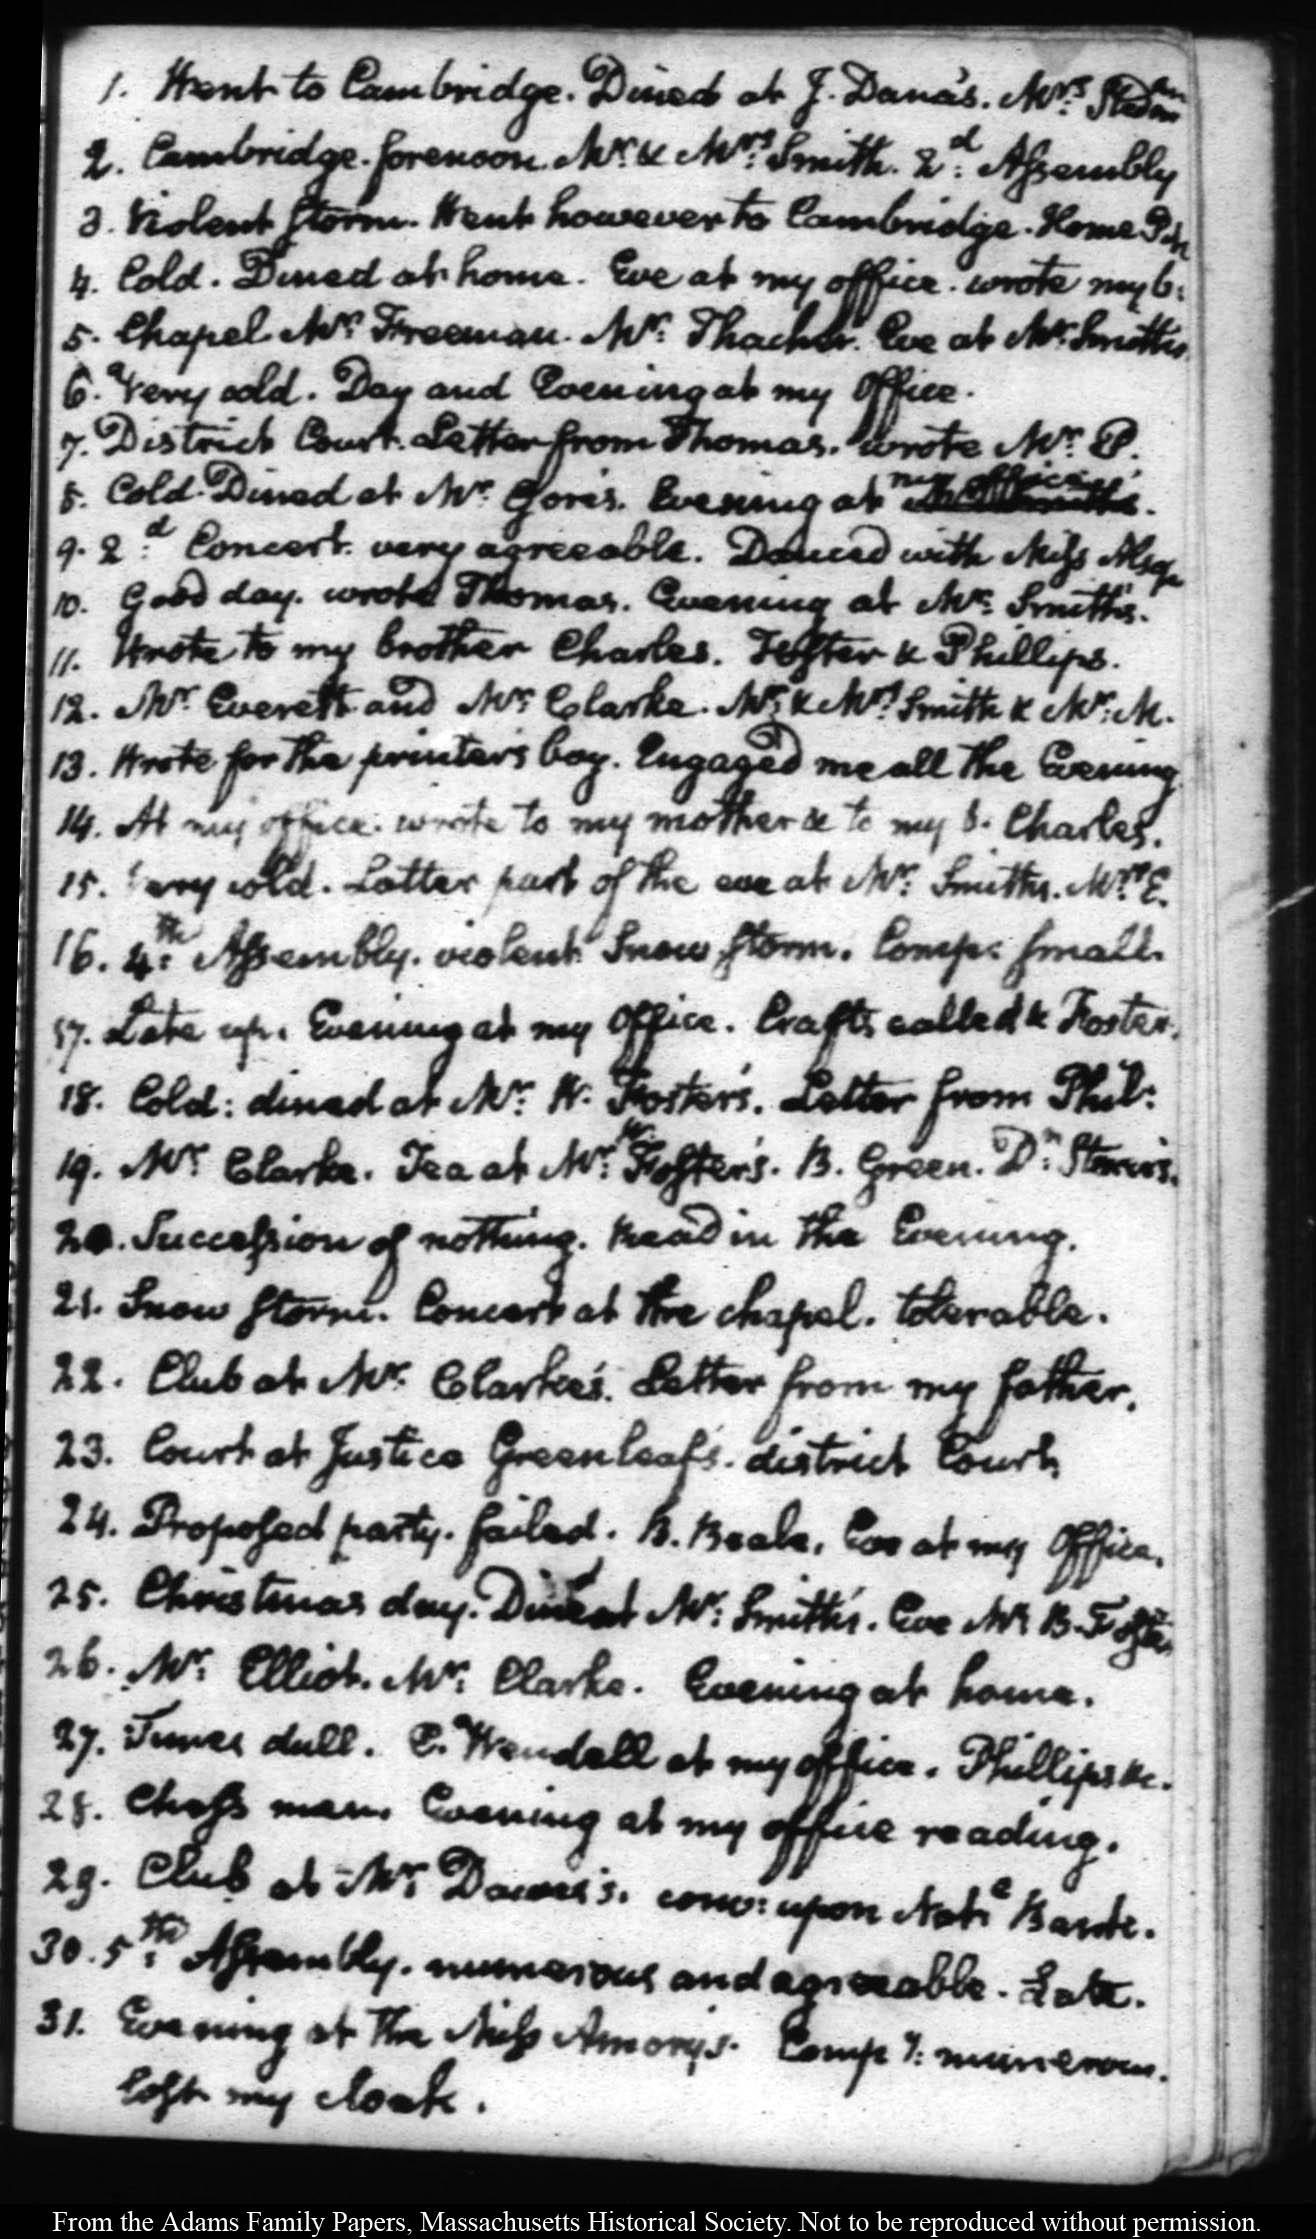 1. Went to Cambridge. Dined at J. Dana's. Mrs.
2. Cambridge. forenoon. Mr. & Mrs. Smith. 2d. Assembly
3. Violent storm. Went however to Cambridge. Home
4. Cold. Dined at home. Eve at my office. wrote my b:
5. Chapel Mr. Freeman. Mr. Thacher. Eve at Mr. Smith's
6. Very cold. Day and Evening at my Office.
7. District Court. Letter from Thomas. wrote Mr. P.
8. Cold. Dined at Mr. Gore's. Evening at my office.
9. 2d. Concert. very agreeable. Danced with Miss
10. Good day. wrote Thomas. Evening at Mr. Smith's.
11. Wrote to my brother Charles. Foster & Phillips.
12. Mr. Everett and Mr. Clarke. Mr. & Mrs. Smith & Mr. M.
13. Wrote for the printer's boy. Engaged me all the Evening
14. At my office. wrote to my mother & to my b. Charles.
15. Very cold. Latter part of the eve at Mr. Smiths. Mrs. E.
16. 4th. Assembly. violent Snow storm. Comp: small.
17. Late up. Evening at my Office. Crafts called & Foster.
18. Cold: dined at Mr. W. Foster's. Letter from Phil:
19. Mr. Clarke. Tea at Mr. W. Foster's. B. Green. Dn.
20. Succession of nothing. Read in the Evening.
21. Snow storm. Concert at the chapel. tolerable.
22. Club at Mr. Clarke's. Letter from my father.
23. Court at Justice Greenleaf's. district Court
24. Proposed party. failed. B. Beale. Eve at my Office.
25. Christmas day. Dined at Mr. Smith's. Eve Mr. B. Foster
26. Mr. Elliot. Mr. Clarke. Evening at home.
27. Times dull. C. Wendell at my office. Phillips &c.
28. Chess men. Evening at my office reading.
29. Club at Mr. Dawes's. conv: upon Nate.
30. 5th. Assembly. numerous and agreeable. Late.
31. Evening at the Miss Amory's. Compy: numerous.
lost my cloak.
From the Adams Family Papers, Massachusetts Historical Society. Not to be reproduced without permission.